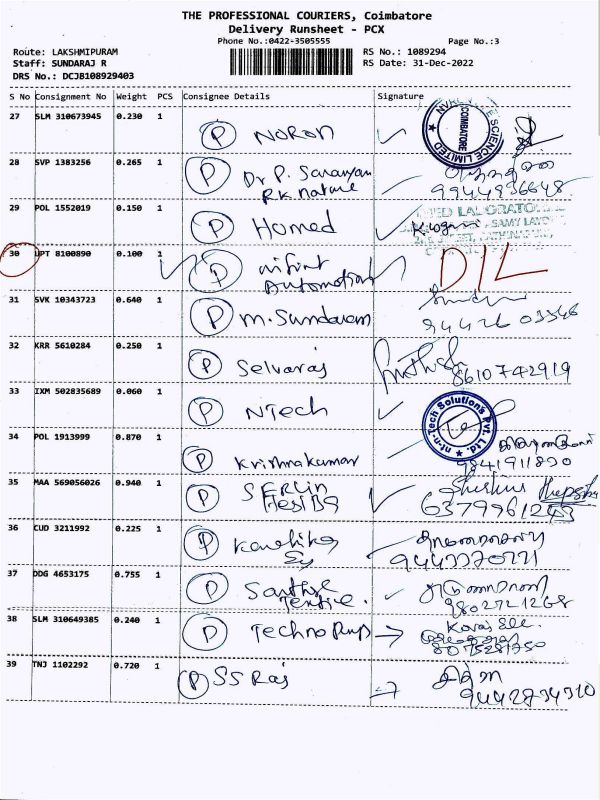 THE PROFESSIONAL COURIERS, Coimbatore
Delivery Runsheet - PCX
Phone No.:0422-3505555 Page No.:3
Route: LAKSHMIPURAM RS No.: 1089294
Staff: SUNDARAJ R RS Date: 31-Dec-2022
DRS No.: DCJB108929403
S No Consignment No Weight PCS Consignee Details Signature
27 SLM 310673945 0.230 1
P NORON
SCIENCE LIMITED COIMBATORE
28 SVP 1383256 0.265 1
P Dr P. Saravanan
RK nature
9944936648
29 POL 1552019 0.150 1
P Homed
30 UPT 8100890 0.100 1
P Infiint Automation DIL
31 SVK 10343723 0.640 1
P M. Sundaram
94426 03346
32 KRR 5610284 0.250 1
P Selvaraj
8610742919
33 IXM 502835689 0.060 1
P NTech
nt-n-Tech Solution's Pvt. Ltd.
34 POL 1913999 0.870 1
P Krishnakumar
9841911890
35 MAA 569056026 0.940 1
P SERLIN
HesiBA
6379961243
36 CUD 3211992 0.225 1
P
37 DDG 4653175 0.755 1
P Santhiya
Textile.
9802721268
38 SLM 310649385 0.240 1
P Techno Pump
8075281750
39 TNJ 1102292 0.720 1
P SS Raj
9442734310